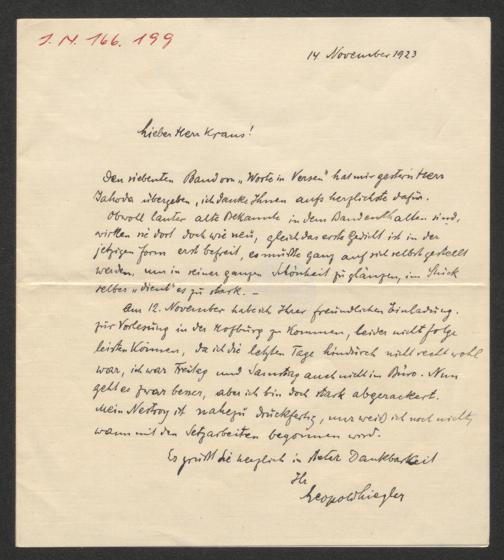 I. N. 166. 199
14 November 1923
Lieber Herr Kraus!
Den siebenten Band von „Worte in Versen" hat mir gestern Herr
Jahoda übergeben, ich danke Ihnen aufs herzlichste dafür.
Obwohl lauter alte Bekannte in dem Band enthalten sind,
wirken sie dort doch wie neu, gleich das erste Gedicht ist in der
jetzigen Form erst befreit, es mußte ganz auf sich selbst gestellt
werden, um in seiner ganzen Schönheit zu glänzen, im Stück
selber „dient" es zu stark. –
Am 12. November habe ich Ihrer freundlichen Einladung,
zur Vorlesung in der Hofburg zu kommen, leider nicht folge
leisten können, da ich die letzten Tage hindurch nicht recht wohl
war, ich war Freitag und Samstag auch nicht im Büro. Nun
geht es zwar besser, aber ich bin doch stark abgerackert.
Mein Nestroy ist nahezu druckfertig, nur weiß ich noch nicht,
wann mit den Setzarbeiten begonnen wird.
Es grüßt Sie herzlich in steter Dankbarkeit
Ihr
Leopold Liegler